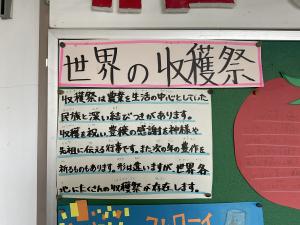 世界の収穫祭
収穫祭は農業を生活の中心としていた
民族と深い結びつきがあります。
収穫を祝い、豊穣の感謝を神様や
先祖に伝える行事です。また次の年の豊作を
祈るものもあります。形は違いますが、世界各
地にたくさんの収穫祭が存在します。